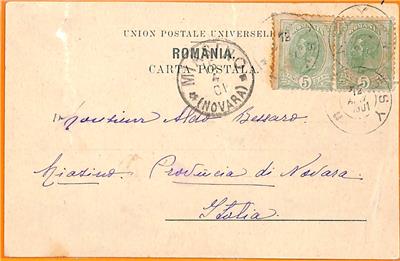 UNION POSTALE UNIVERSELLE
ROMÂNIA.
CARTA POSTALA.
5 5
(NOVARA)
Monsieur Aldo Bessaro
Miasino Provincia di Novara
Italia